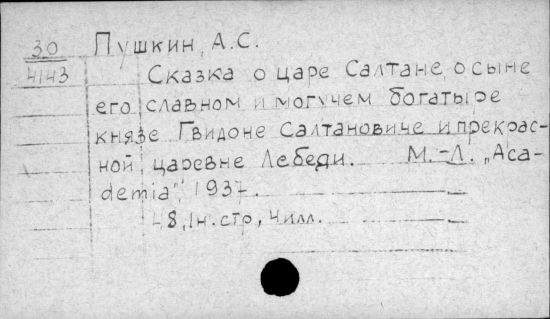 30 Пушкин, А.С.
4143 Сказка о царе Салтане, о сыне
его славном и могучем богатыре
князе Гвидоне Салтановиче и прекрас-
ной царевне Лебеди. М.-Л. „Aca-
demia", 1937.
48, 1н.стр, 4илл.